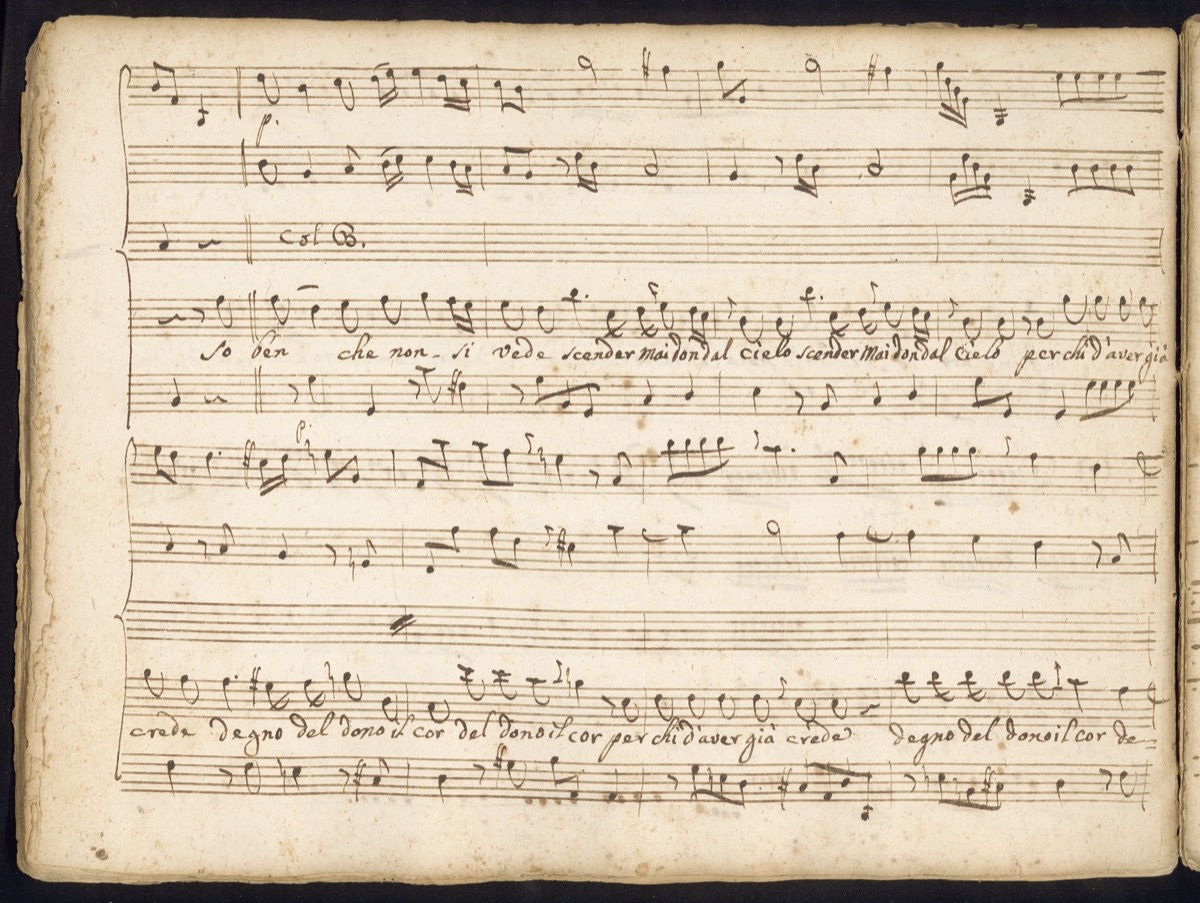 p.
Col B.
so ben che non - si vede scender mai don dal cielo scender mai don dal cielo per chi d'aver già
p.
crede degno del dono il cor del dono il cor per chi d'aver già crede degno del dono il cor de=